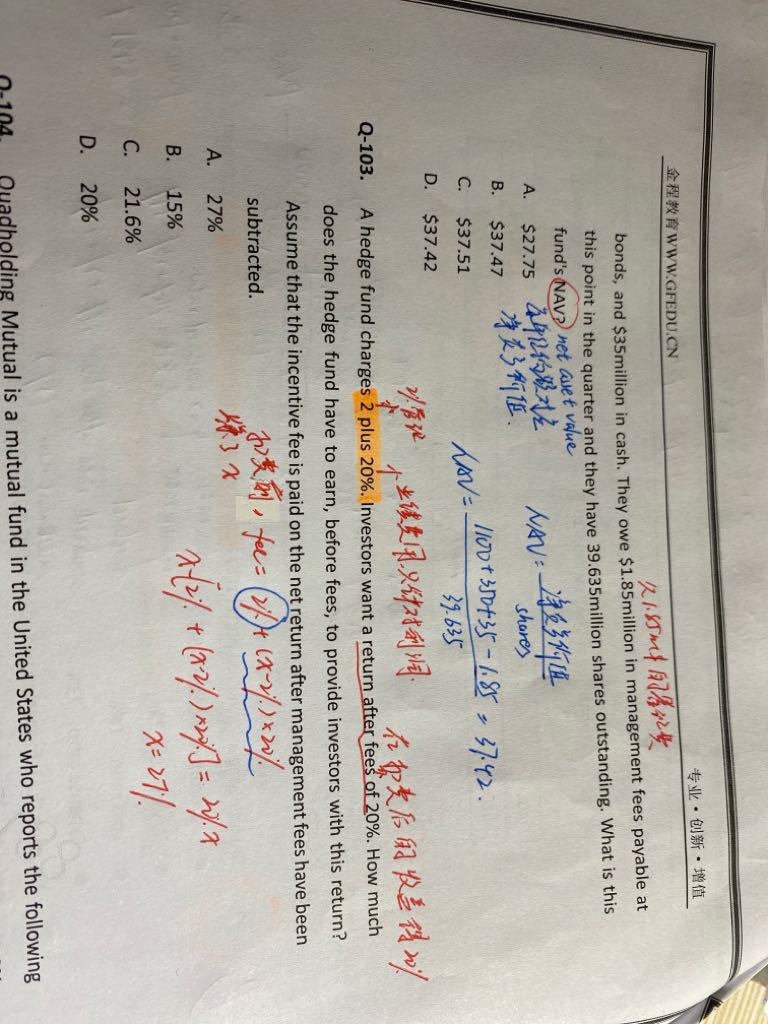 金程教育WWW.GFEDU.CN
专业・创新・增值
欠1.85m的管理费
bonds, and $35million in cash. They owe $1.85million in management fees payable at
this point in the quarter and they have 39.635million shares outstanding. What is this
fund's NAV? net asset value
A. $27.75
净资产价值.
B. $37.47
C. $37.51
D. $37.42
NAV = 净资产价值
shares
NAV = 1100+350+35-1.85 = 37.42.
39.635
2%管理
业绩费用,只针对利润.
在扣费后的收益得20%
Q-103. A hedge fund charges 2 plus 20%. Investors want a return after fees of 20%. How much
does the hedge fund have to earn, before fees, to provide investors with this return?
Assume that the incentive fee is paid on the net return after management fees have been
subtracted.
扣费前, fee = 2% + (x-2%)×20%
赚了x
x-[2% + (x-2%)×20%] = 20%.x
x=27%
A. 27%
B. 15%
C. 21.6%
D. 20%
Q-104. Quadholding Mutual is a mutual fund in the United States who reports the following